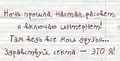 Ночь прошла, настал рассвет
я включаю интернет!
Там ведь все мои друзья...
Здравствуй, секта — ЭТО Я!